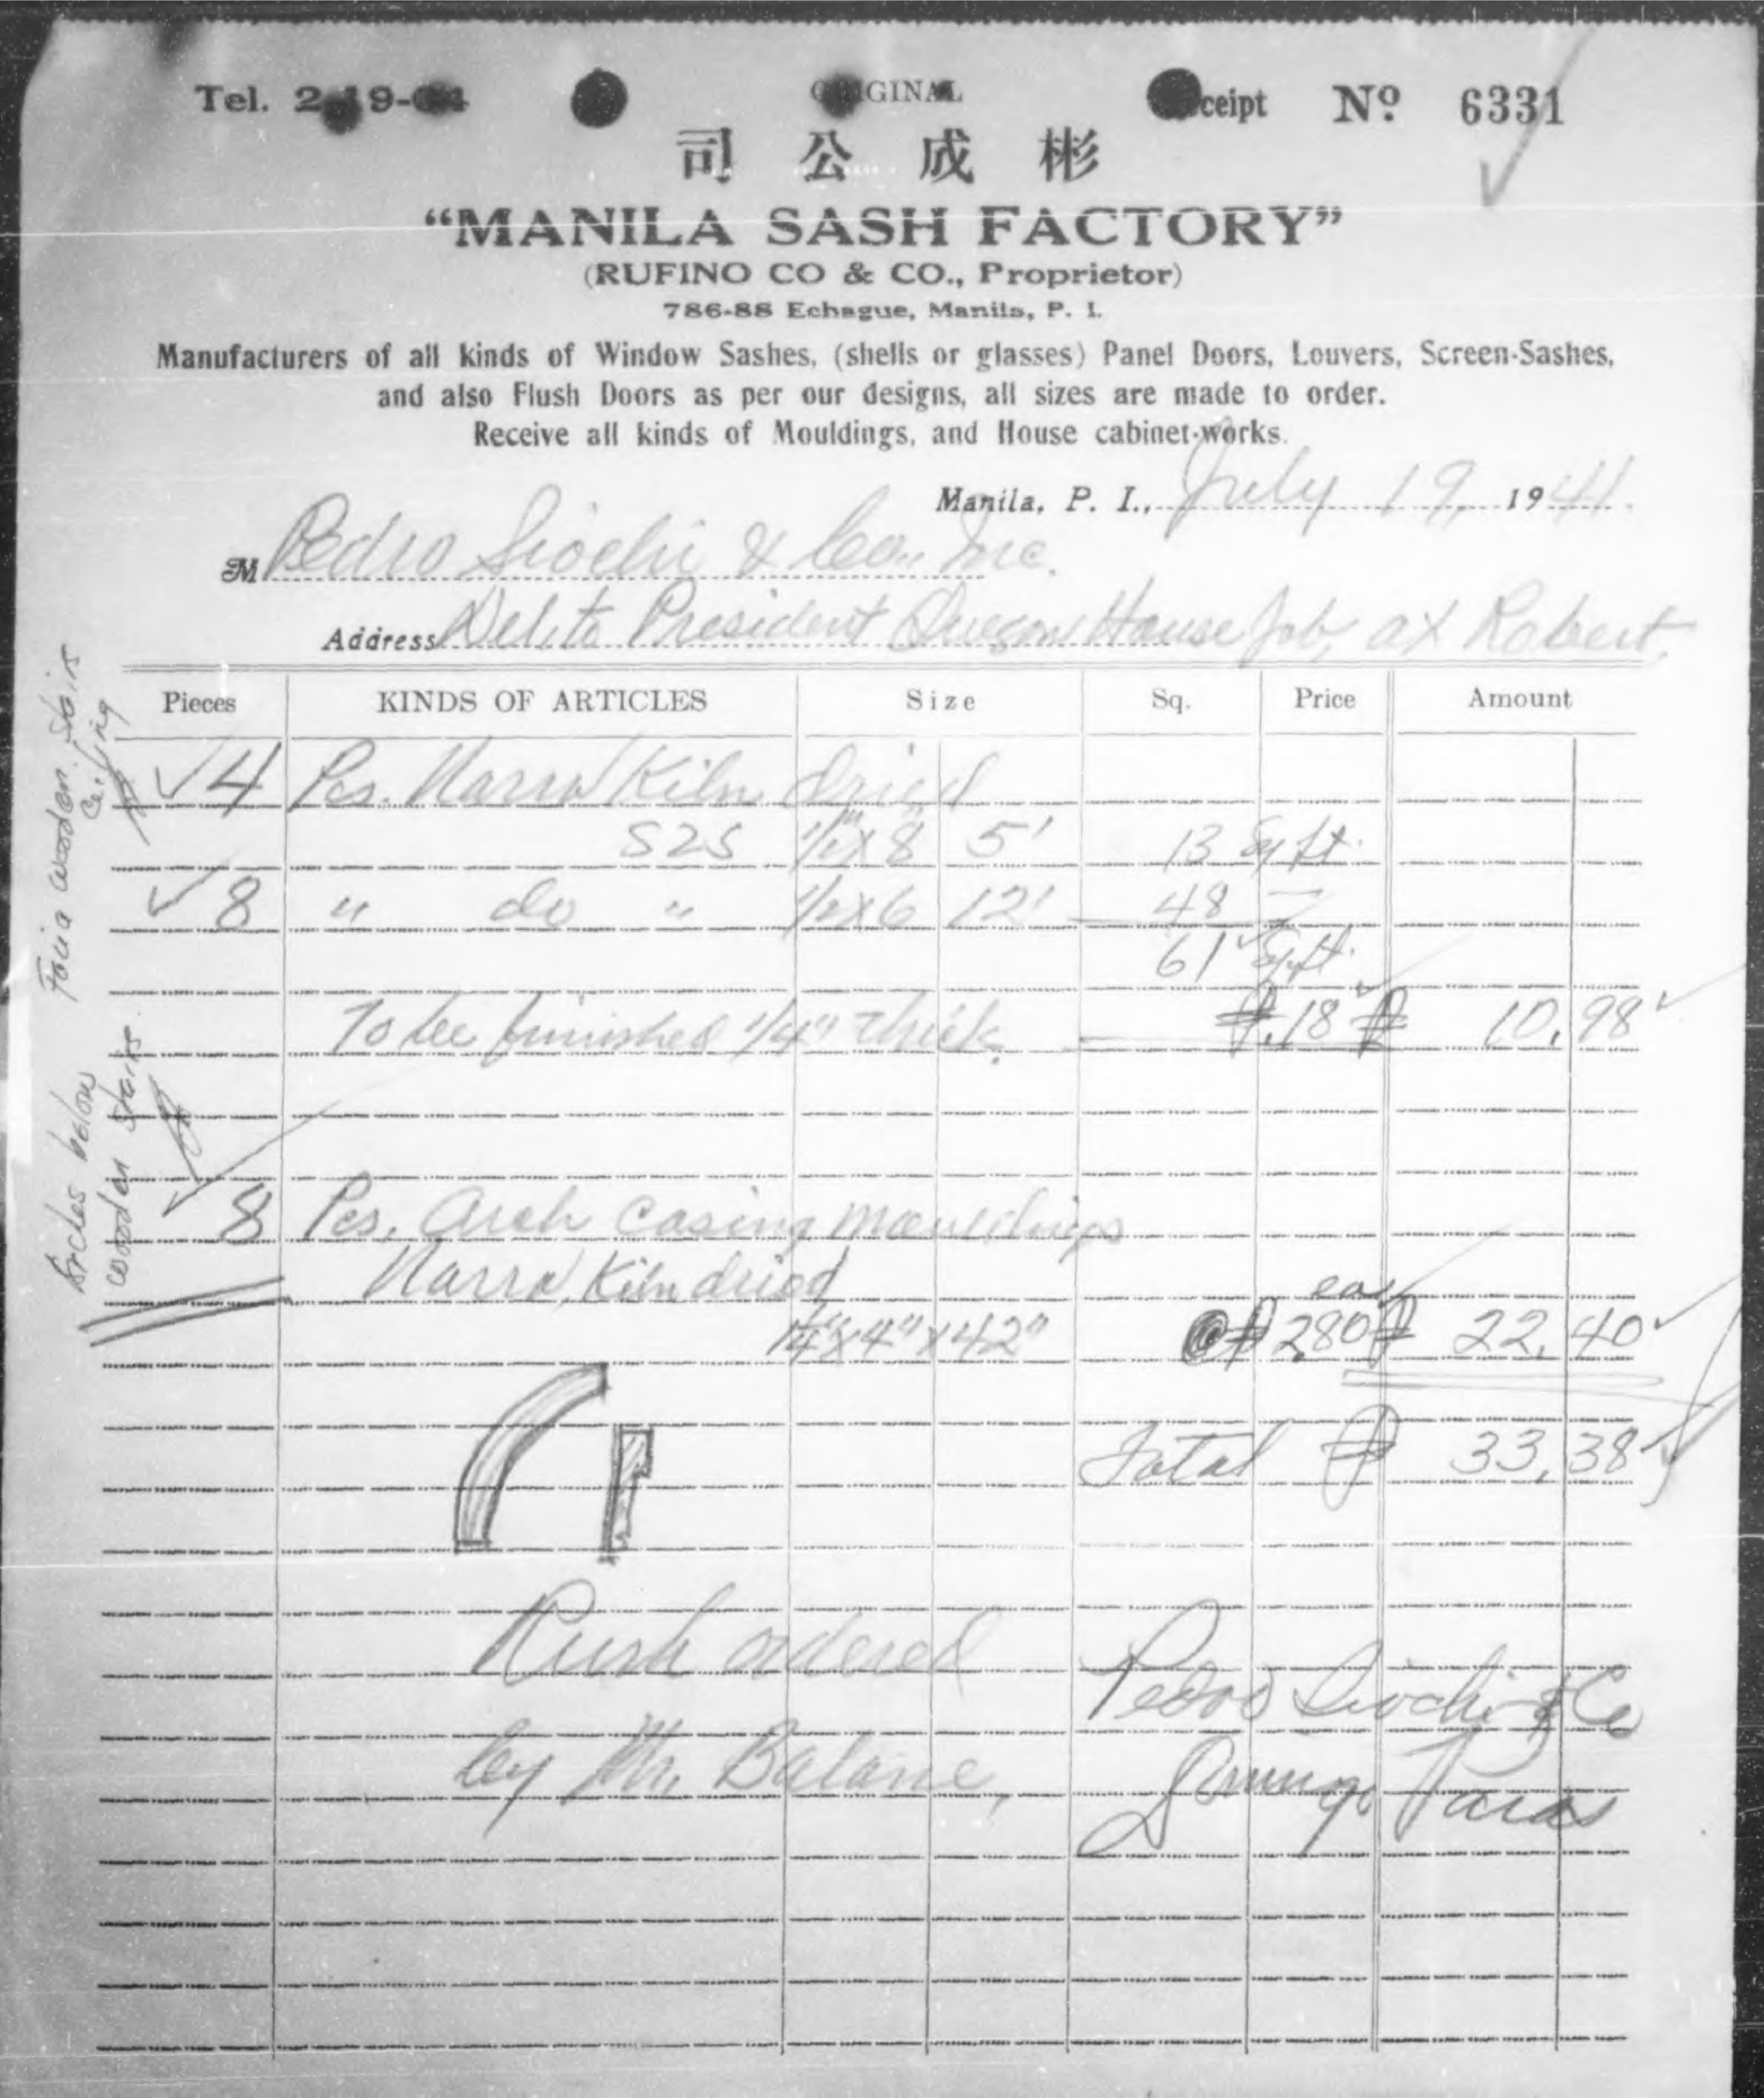 Tel. 2 19-
ORIGINAL
Receipt Nº 6331
司公成彬
“MANILA SASH FACTORY”
(RUFINO CO & CO., Proprietor)
786-88 Echague, Manila, P. I.
Manufacturers of all kinds of Window Sashes, (shells or glasses) Panel Doors, Louvers, Screen-Sashes,
and also Flush Doors as per our designs, all sizes are made to order.
Receive all kinds of Mouldings, and House cabinet-works.
Manila, P. I., July 19, 1941.
M Pedro Siochi & Co., Inc.
Address Del. to President Quezon House Job, at Robert.
Pieces KINDS OF ARTICLES Size Sq. Price Amount
4 Pcs. Narra Kiln dried
S2S 1/2"x8 5' 13 Sq ft.
8 " do " 1/2x6 12' 48
61 Sq ft.
To be finished 1/4" thick. ₱.18 ₱ 10.98
8 Pcs. Arch casing mouldings
Narra, Kiln dried
x4"x42" @ ₱2.80 ea ₱ 22.40
Total ₱ 33.38
Rush ordered
by Mr. Balane,
Pedro Siochi & Co
Paras
wooden stairs
Ceiling
below
wooden stairs